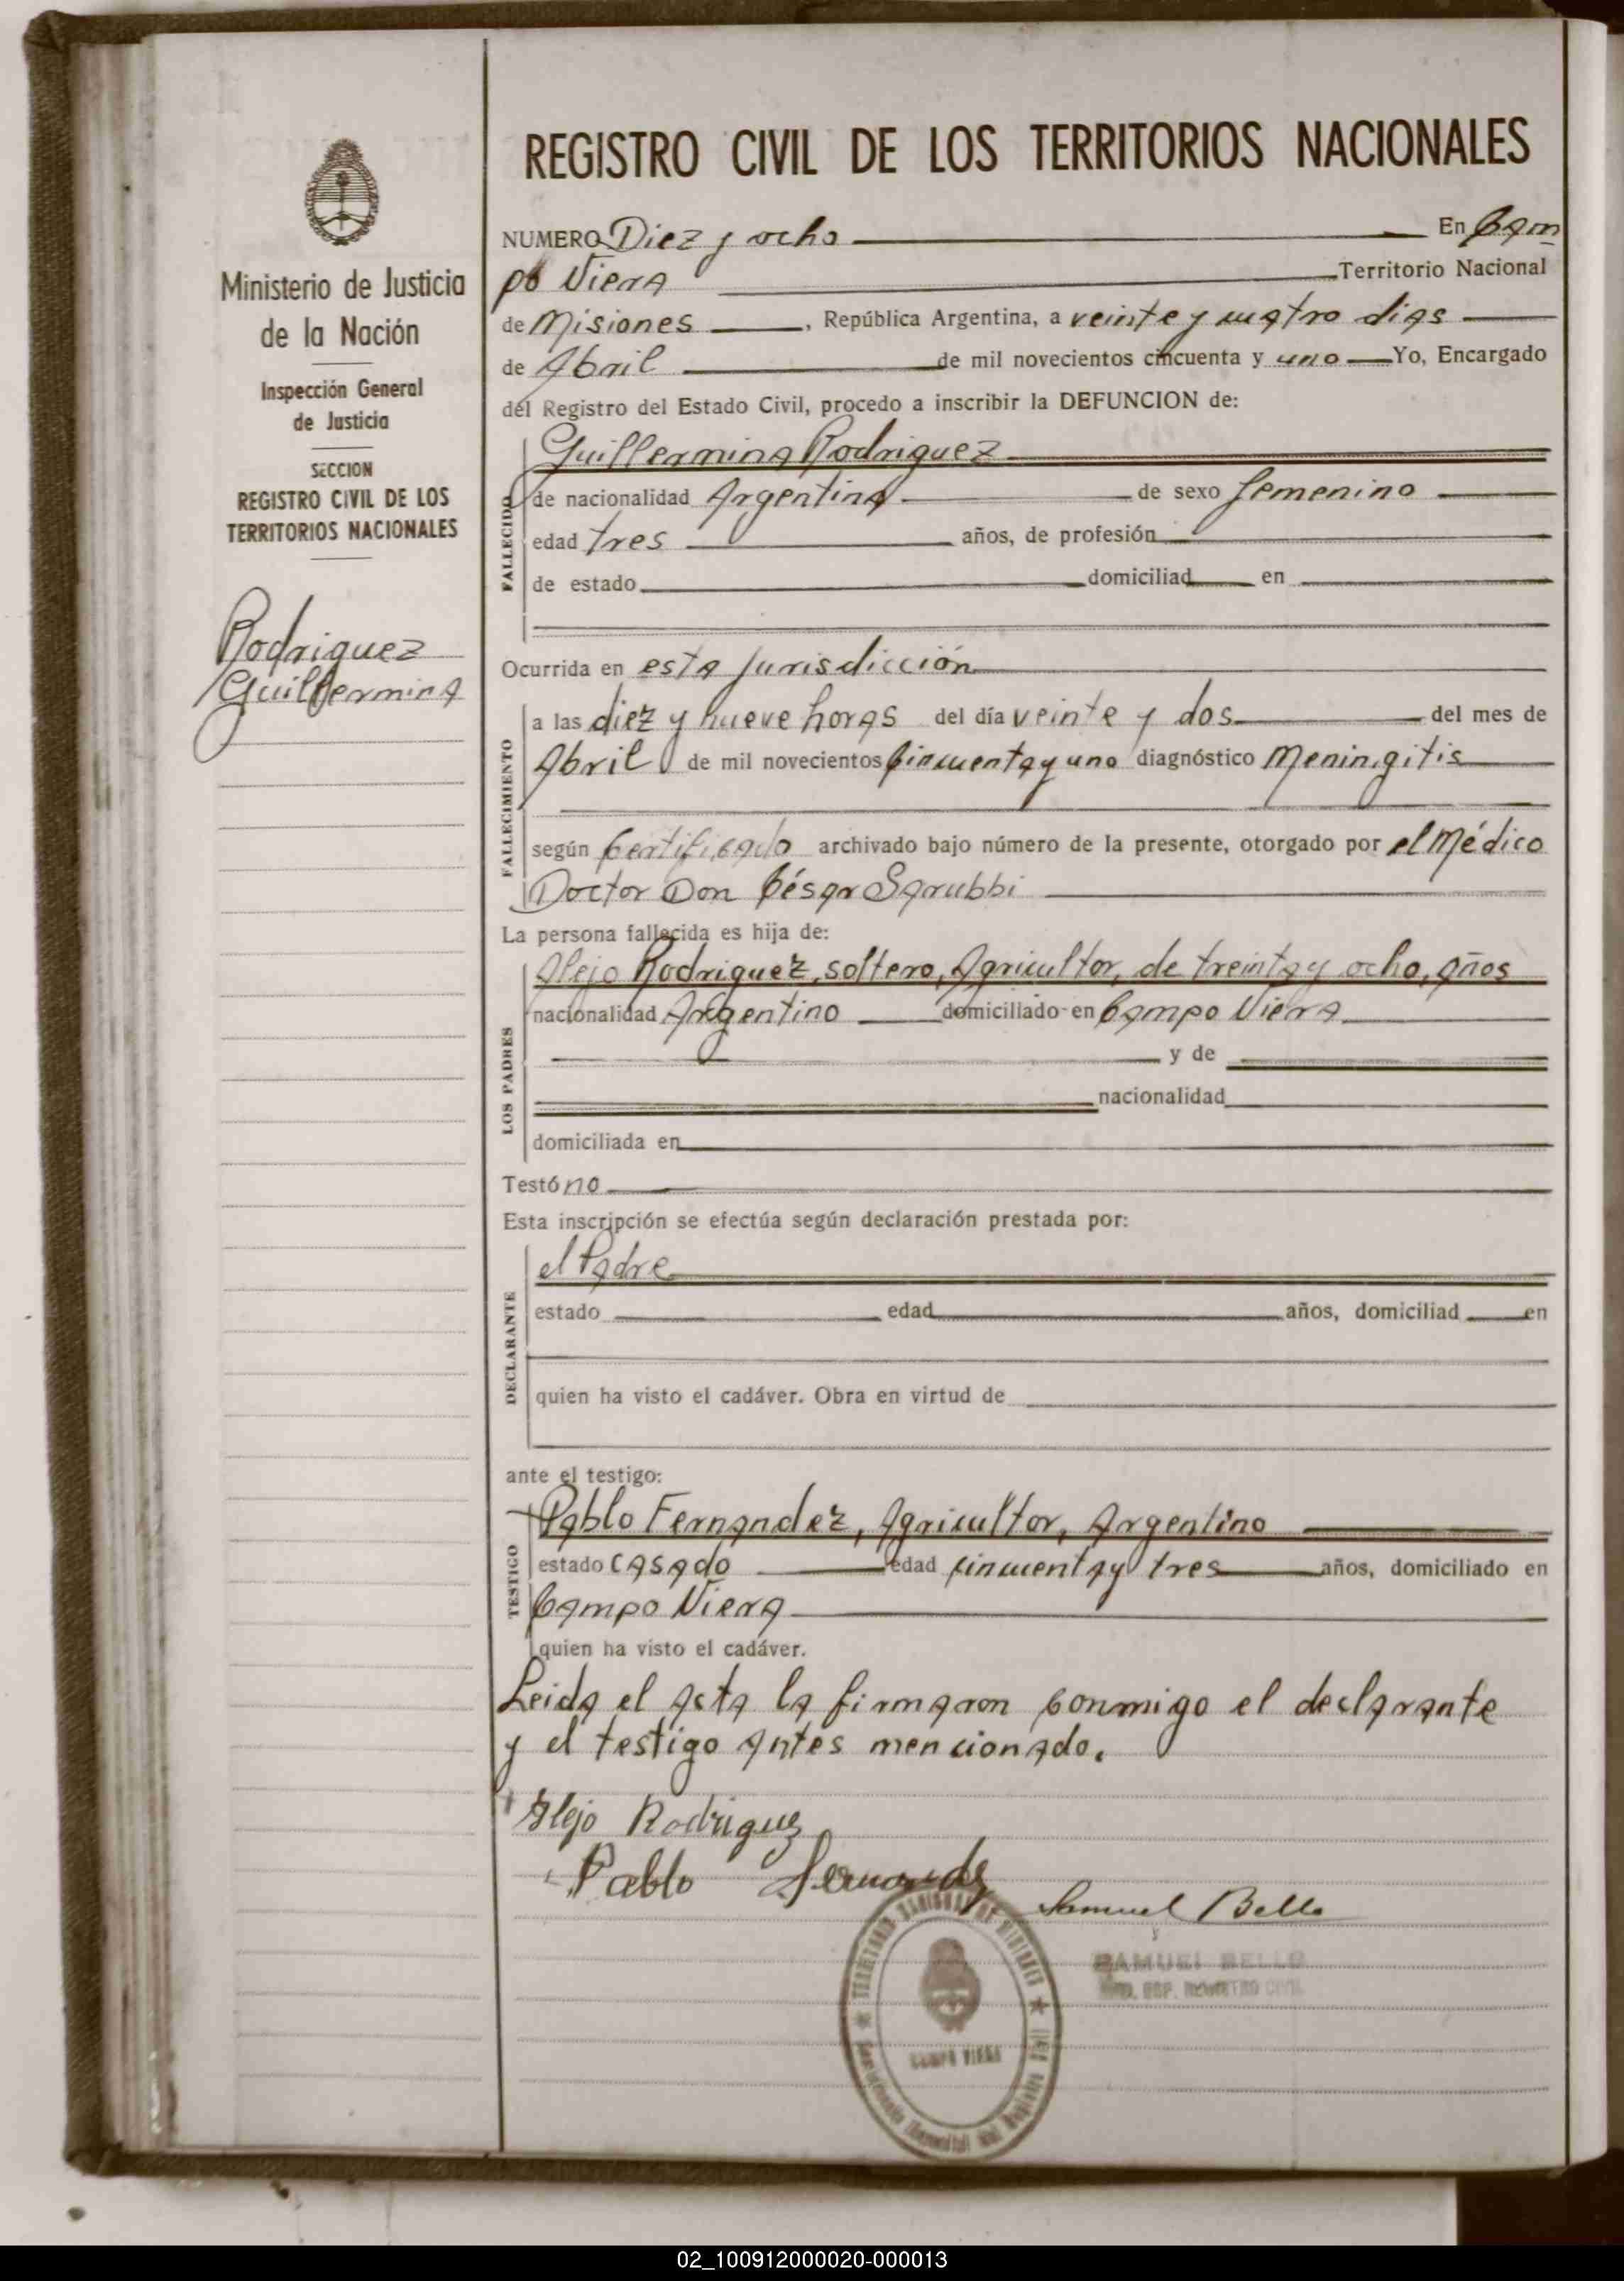 REGISTRO CIVIL DE LOS TERRITORIOS NACIONALES
Ministerio de Justicia
de la Nación
Inspección General
de Justicia
SECCION
REGISTRO CIVIL DE LOS
TERRITORIOS NACIONALES
Rodriguez
Guillermina
NUMERO Diez y ocho En Cam
po Viera Territorio Nacional
de Misiones, República Argentina, a veinte y cuatro dias
de Abril de mil novecientos cincuenta y uno Yo, Encargado
del Registro del Estado Civil, procedo a inscribir la DEFUNCION de:
FALLECIDO
Guillermina Rodriguez
de nacionalidad Argentina de sexo femenino
edad tres años, de profesión
de estado domiciliad en
Ocurrida en esta Jurisdicción
FALLECIMIENTO
a las diez y nueve horas del día veinte y dos del mes de
Abril de mil novecientos Cincuenta y uno diagnóstico Meningitis
según Certificado archivado bajo número de la presente, otorgado por el Médico
Doctor Don César Sarubbi
La persona fallecida es hija de:
LOS PADRES
Alejo Rodriguez, soltero, Agricultor, de treinta y ocho, años
nacionalidad Argentino domiciliado en Campo Viera
y de
nacionalidad
domiciliada en
Testó no
Esta inscripción se efectúa según declaración prestada por:
DECLARANTE
el Padre
estado edad años, domiciliad en
quien ha visto el cadáver. Obra en virtud de
ante el testigo:
TESTIGO
Pablo Fernandez, Agricultor, Argentino
estado casado edad cincuenta y tres años, domiciliado en
Campo Viera
quien ha visto el cadáver.
Leida el acta la firmaron conmigo el declarante
y el testigo antes mencionado.
Alejo Rodriguez
Pablo Fernandez
Samuel Bello
SAMUEL BELLO
REGISTRO CIVIL
CAMPO VIERA
02_100912000020-000013